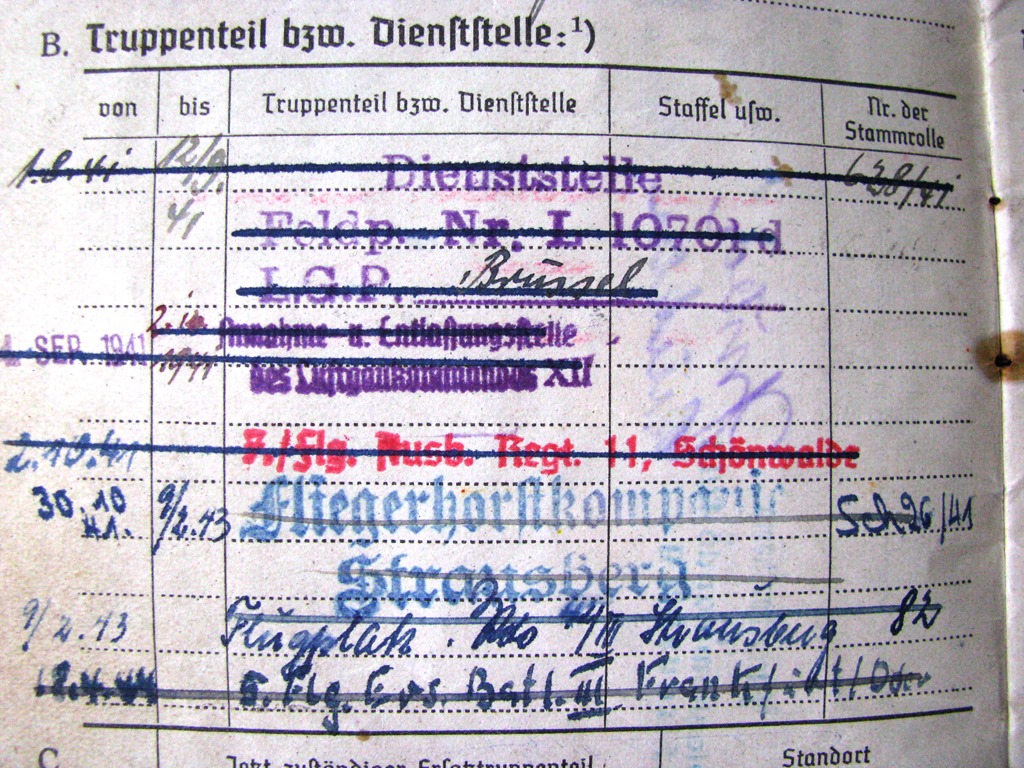 B. Truppenteil bzw. Dienststelle:¹)
von bis Truppenteil bzw. Dienststelle Staffel usw. Nr. der Stammrolle
1.8.41 12/9. 41 Dienststelle 638/41
Feldp. Nr. L 10701
L.G.P. Brüssel
SEP. 1941 1941 Annahme- u. Entlassungsstelle
des Luftgaukommandos XII
2.10.41 Flg. Ausb. Regt. 11, Schönwalde
30.10 41. 9/2.43 Fliegerhorstkompanie Sch 26/41
Strausberg
9/2.43 Flugplatz. Kdo III Strausberg 82
5. Flg. Ers. Batl. III Frankfurt/Oder
C.
Jetzt zuständiger Ersatztruppenteil Standort